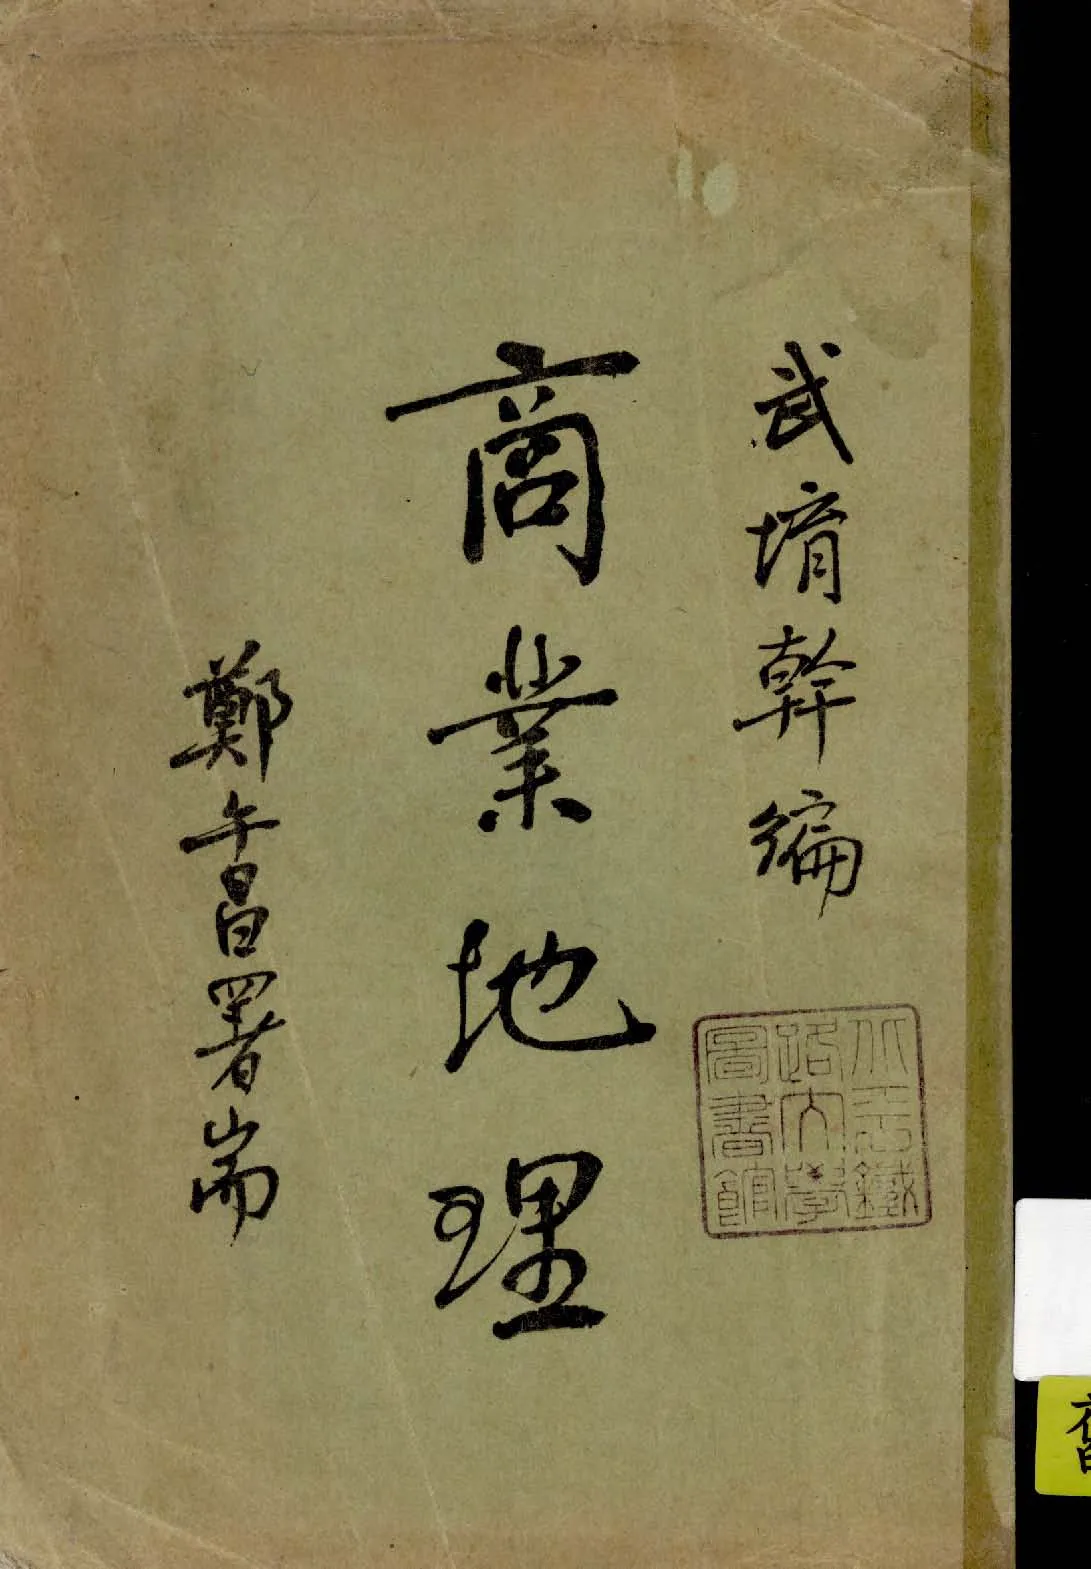 武堉幹編
商業地理
鄭午昌署耑
北平鐵
路大學
圖書館